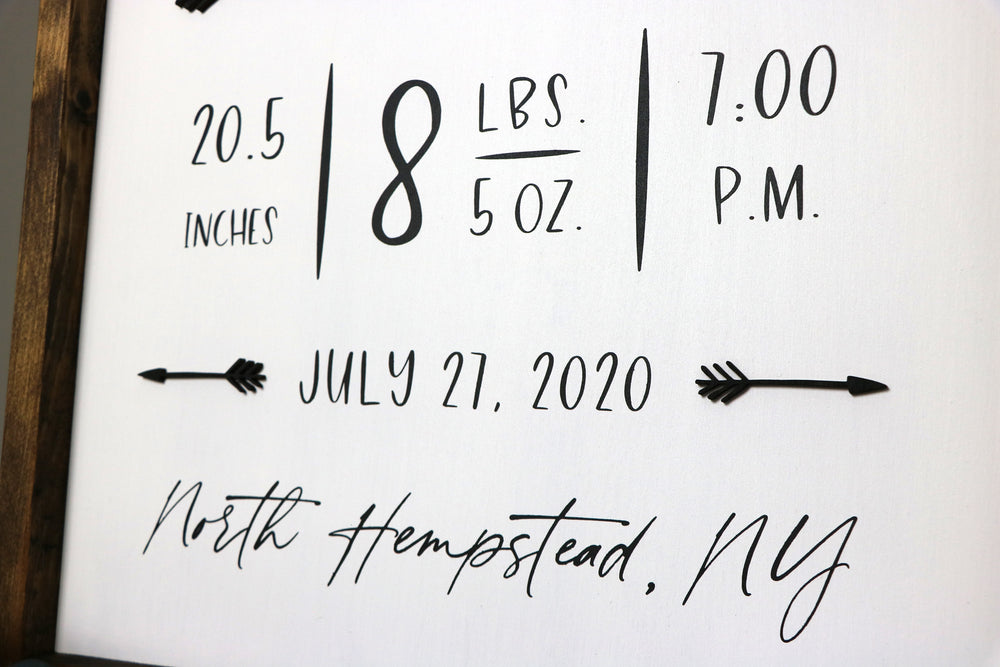 20.5 INCHES
8 LBS. 5 OZ.
7:00 P.M.
JULY 27, 2020
North Hempstead, NY